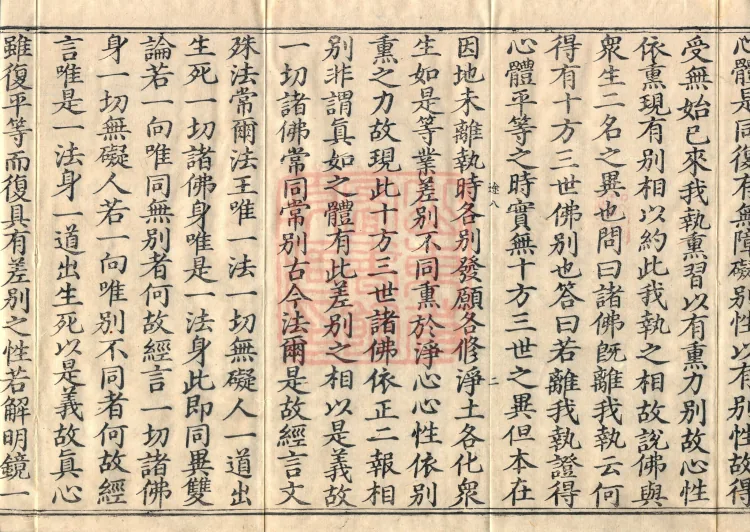 心體是同復有無障礙別性以有別性故得
受無始已來我執熏習以有熏力別故心性
依熏現有別相以約此我執之相故說佛與
衆生二名之異也問曰諸佛旣離我執云何
得有十方三世佛別也答曰若離我執證得
心體平等之時實無十方三世之異但本在
因地未離執時各別發願各修淨土各化衆
生如是等業差別不同熏於淨心心性依別
熏之力故現此十方三世諸佛依正二報相
別非謂眞如之體有此差別之相以是義故
一切諸佛常同常別古今法爾是故經言文
殊法常爾法王唯一法一切無礙人一道出
生死一切諸佛身唯是一法身此卽同異雙
論若一向唯同無別者何故經言一切諸佛
身一切無礙人若一向唯別不同者何故經
言唯是一法身一道出生死以是義故眞心
雖復平等而復具有差別之性若解明鏡一